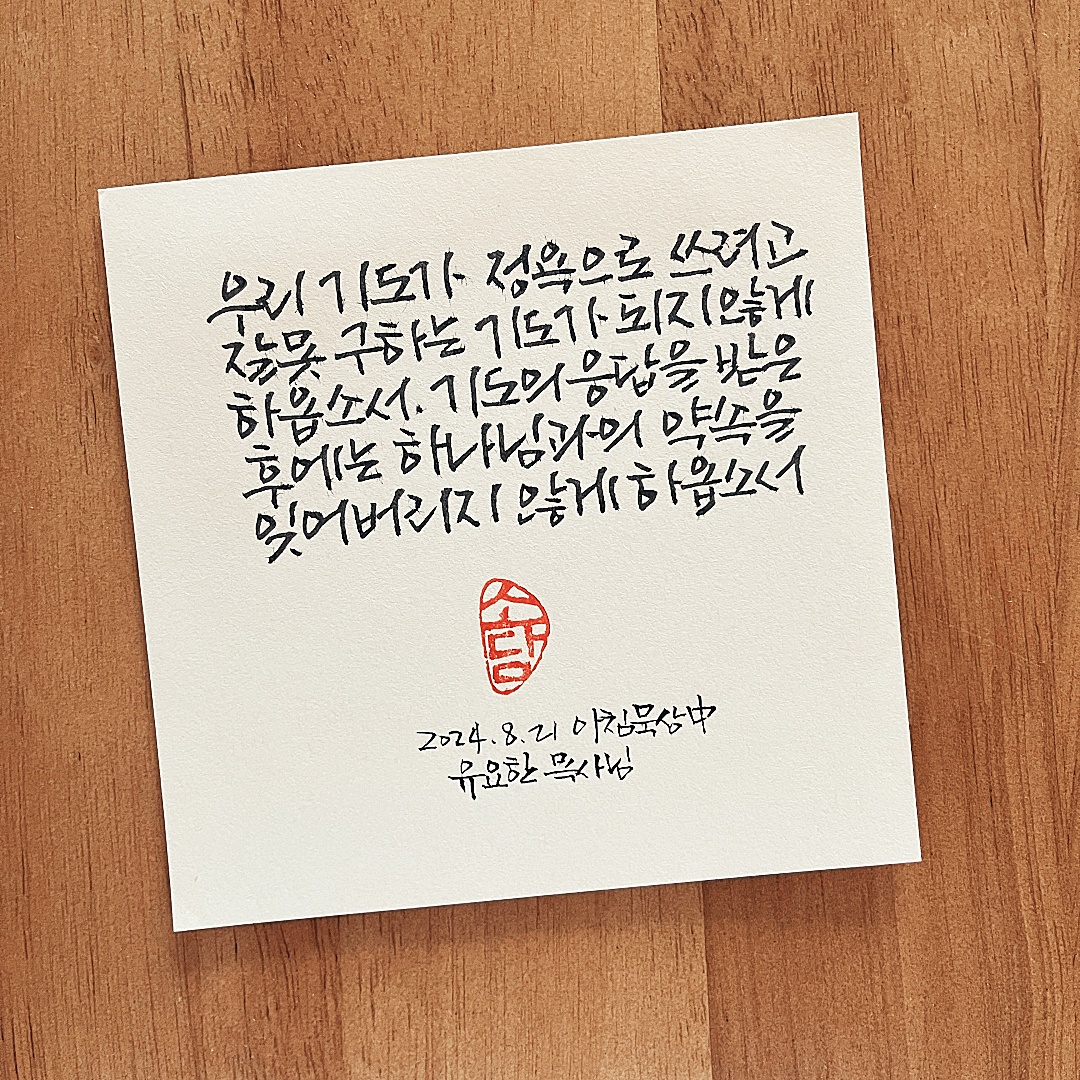 우리 기도가 정욕으로 쓰려고
잘못 구하는 기도가 되지않게
하옵소서. 기도의 응답을 받은
후에는 하나님과의 약속을
잊어버리지 않게 하옵소서
소담
2024. 8. 21 아침묵상中
유요한 목사님